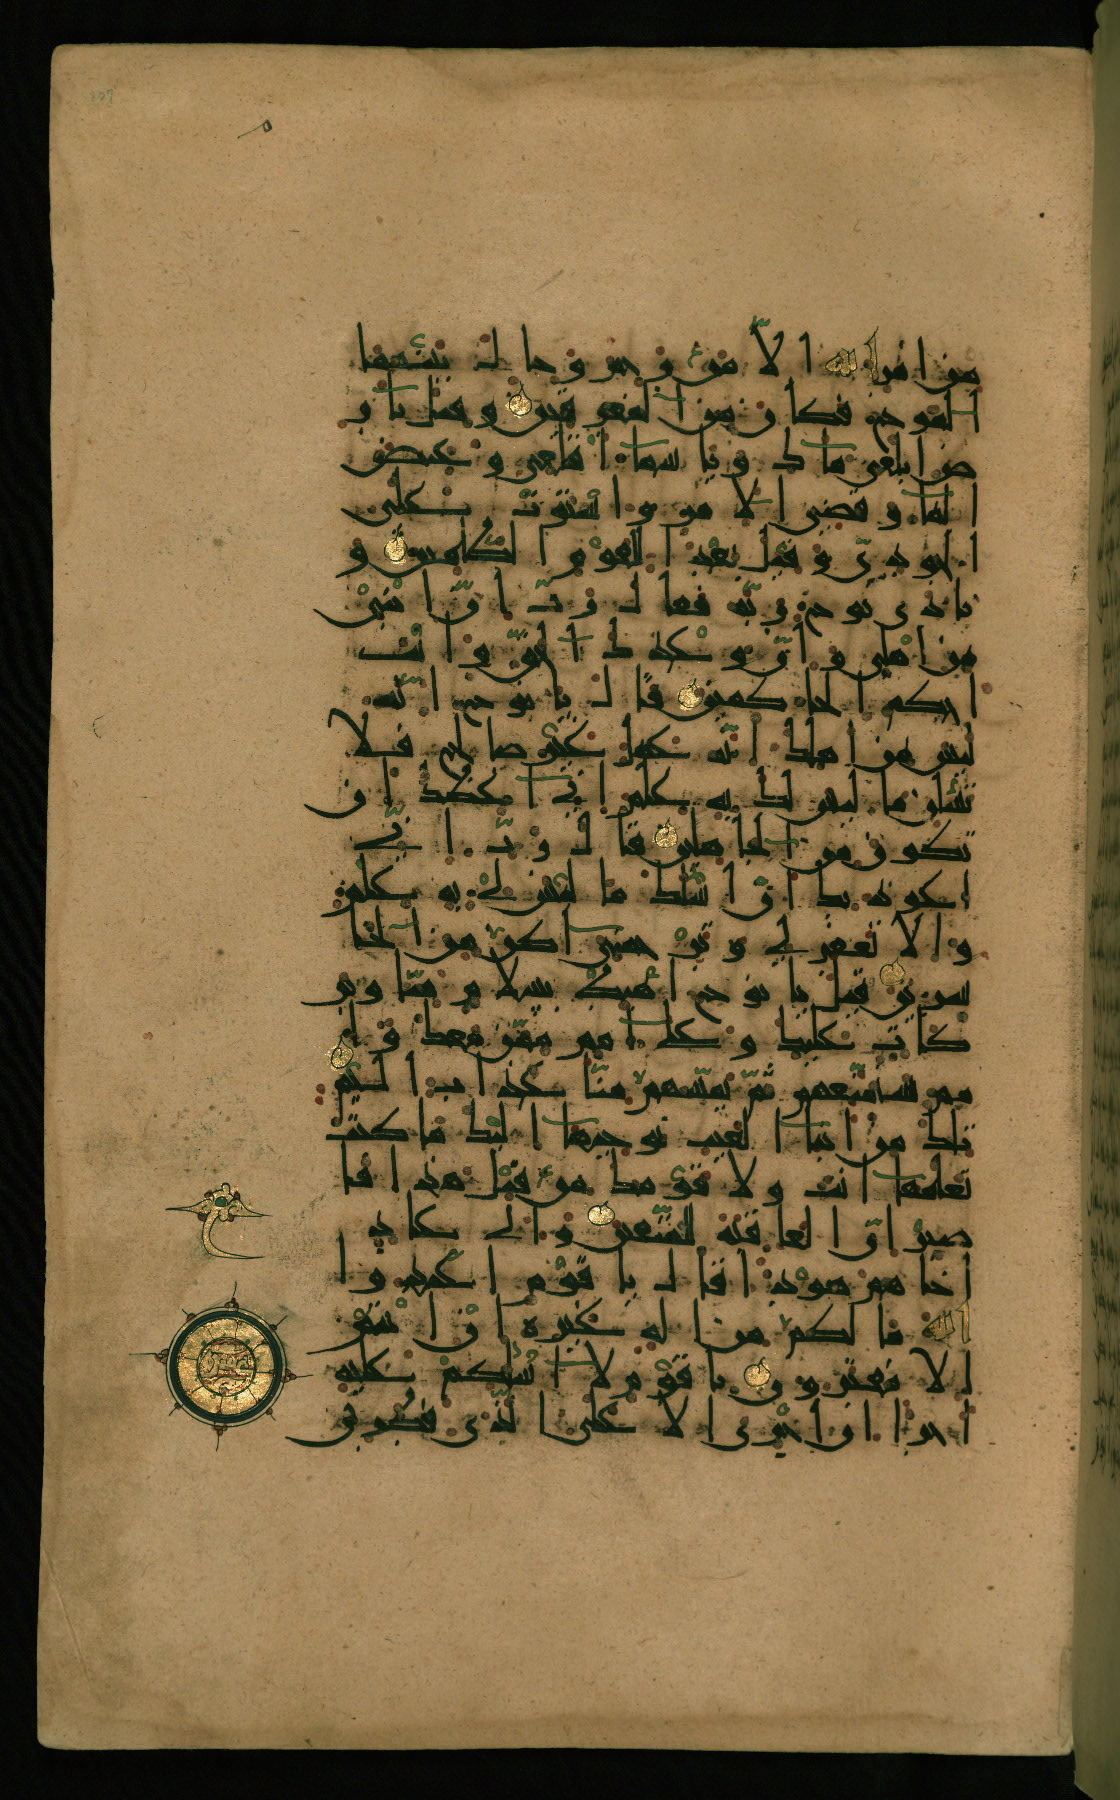 من امر الله الا من رحم وحال بينهما
الموج فكان من المغرقين وقيل يا ار
ض ابلعي ماك ويا سما اقلعي وغيض
الما وقضي الامر واستوت على
الجودي وقيل بعدا للقوم الظلمين و
نادى نوح ربه فقال رب ان ابني
من اهلي وان وعدك الحق وانت
احكم الحاكمين قال يا نوح انه
ليس من اهلك انه عمل غير صالح فلا
تسئلن ما ليس لك به علم اني اعظك ان
تكون من الجاهلين قال رب اني
اعوذ بك ان اسئلك ما ليس لي به علم
والا تغفر لي وترحمني اكن من الخا
سرين قيل يا نوح اهبط بسلام منا وبر
كات عليك وعلى امم ممن معك وا
مم سنمتعهم ثم يمسهم منا عذاب اليم
تلك من انبا الغيب نوحيها اليك ما كنت
تعلمها انت ولا قومك من قبل هذا فا
صبر ان العاقبة للمتقين والى عاد
اخاهم هودا قال يا قوم اعبدوا
الله ما لكم من اله غيره ان انتم
الا مفترون يا قوم لا اسئلكم عليه
اجرا ان اجري الا على الذي فطرني